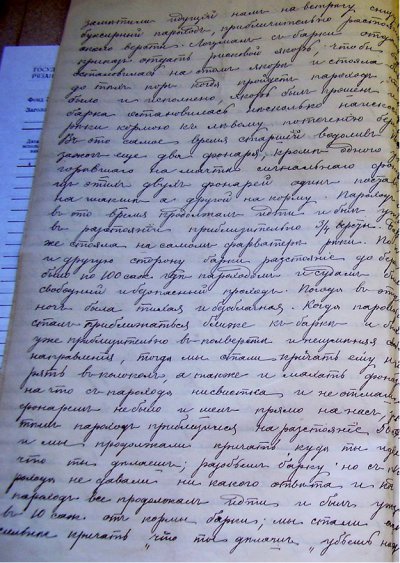 ГОСУ
РЯЗАН
Фонд
Заголо
Дата
замѣтили идущій намъ на встрѣчу, сниз
буксирный пароходъ, приблизительно разстоя
около версты. Лоцманъ съ баржи отда
приказъ отдать рысковой якорь, чтобы
остановилась на этомъ якорѣ и стояла
до тѣхъ поръ когда пройдетъ пароходъ,
было и исполнено, якорь былъ брошенъ,
баржа остановилась нѣсколько наискось
рѣки кормою къ лѣвому по теченію бер
Въ это самое время старшій водоливъ
зажогъ еще два фонаря, кромѣ одного
горѣвшаго на мачтѣ сигнальнаго фона
изъ этихъ двухъ фонарей одинъ поста
на шакшѣ а другой на корму. Пароходъ
въ это время продолжалъ идти и былъ уж
въ разстояніи приблизительно 3/4 версты. Б
же стояла на самомъ фарватерѣ рѣки. По
и другую сторону баржи разстояніе до бер
было по 100 саж. гдѣ пароходамъ и судамъ б
свободный и безопасный проходъ. Погода въ эт
ночь была тихая и безоблачная. Когда парох
сталъ приближаться ближе къ баржѣ и был
уже приблизительно въ полверсты и не измѣняя
направленія, тогда мы стали кричать ему и
рять въ колоколъ, а также и махать фонар
на что съ парохода ни свистка и не отмаш
фонаремъ не было и шелъ прямо на насъ,
этимъ пароходъ приблизился на разстояніе
и мы продолжали кричать куда ты иде
что ты дѣлаешь; разобьешь баржу но съ па
рохода не давали ни какого отвѣта и
пароходъ все продолжалъ идти и былъ уж
въ 10 саж. отъ кормы баржи; мы стали
сильнѣе кричать „что ты дѣлаешь" „убьешь на